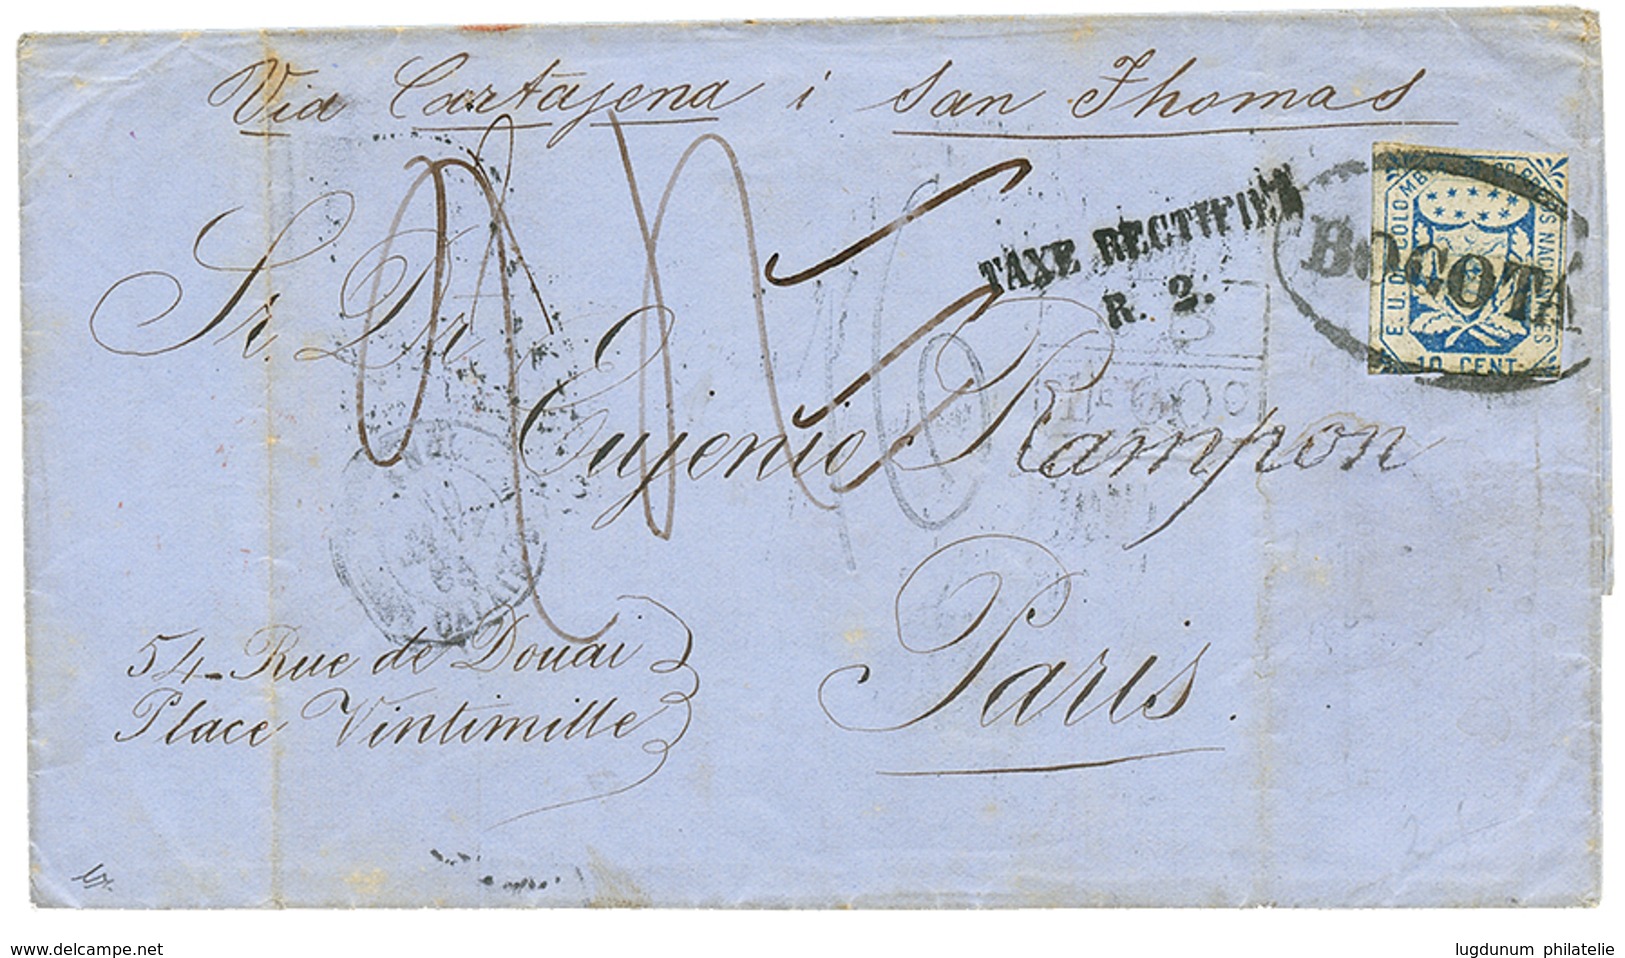 Via Cartajena i San Thomas
TAXE RECTIFIEE
R. 2.
E. U. DE COLOMBIA CORREOS NACIONALES
10 CENT.
BOGOTA
Sr. Dr.
Eujenio Rampon
Paris.
54 - Rue de Douai
Place Vintimille
CALAIS
GB
1Fr 60c
www.delcampe.net
lugdunum philatelie